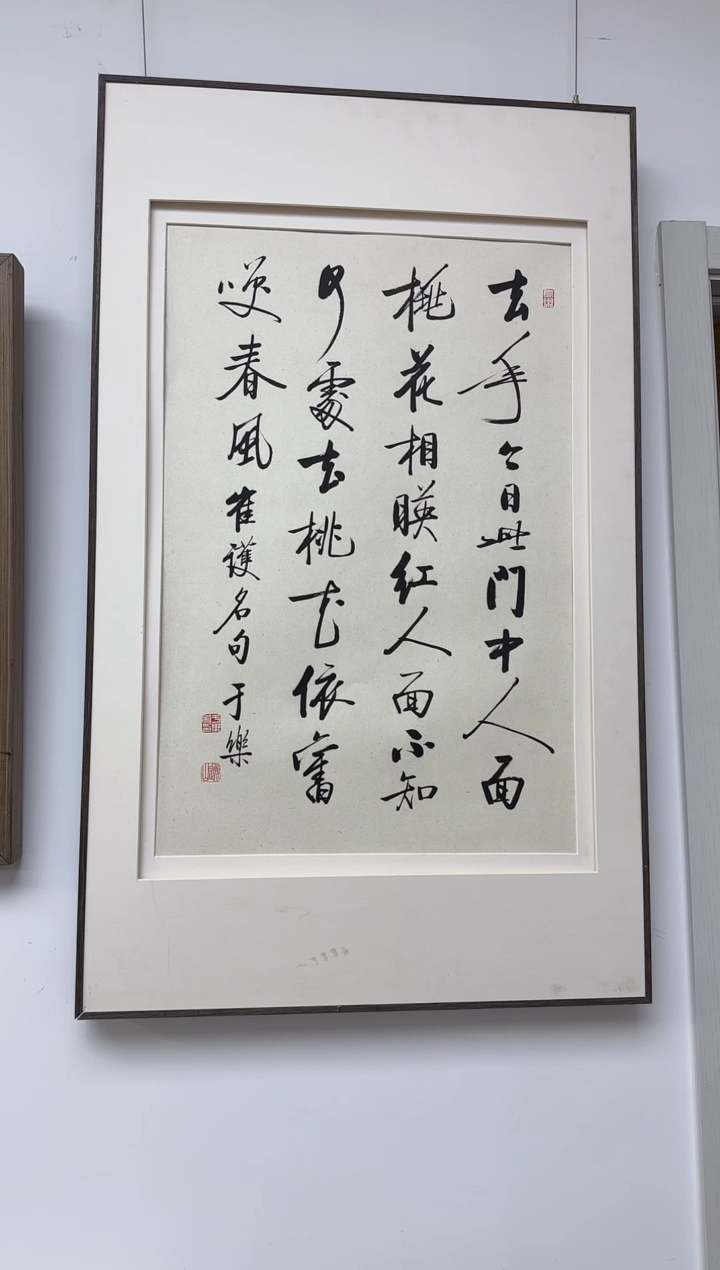 去年今日此門中人面
桃花相暎紅人面不知
何處去桃花依舊
咲春風崔護名句于樂